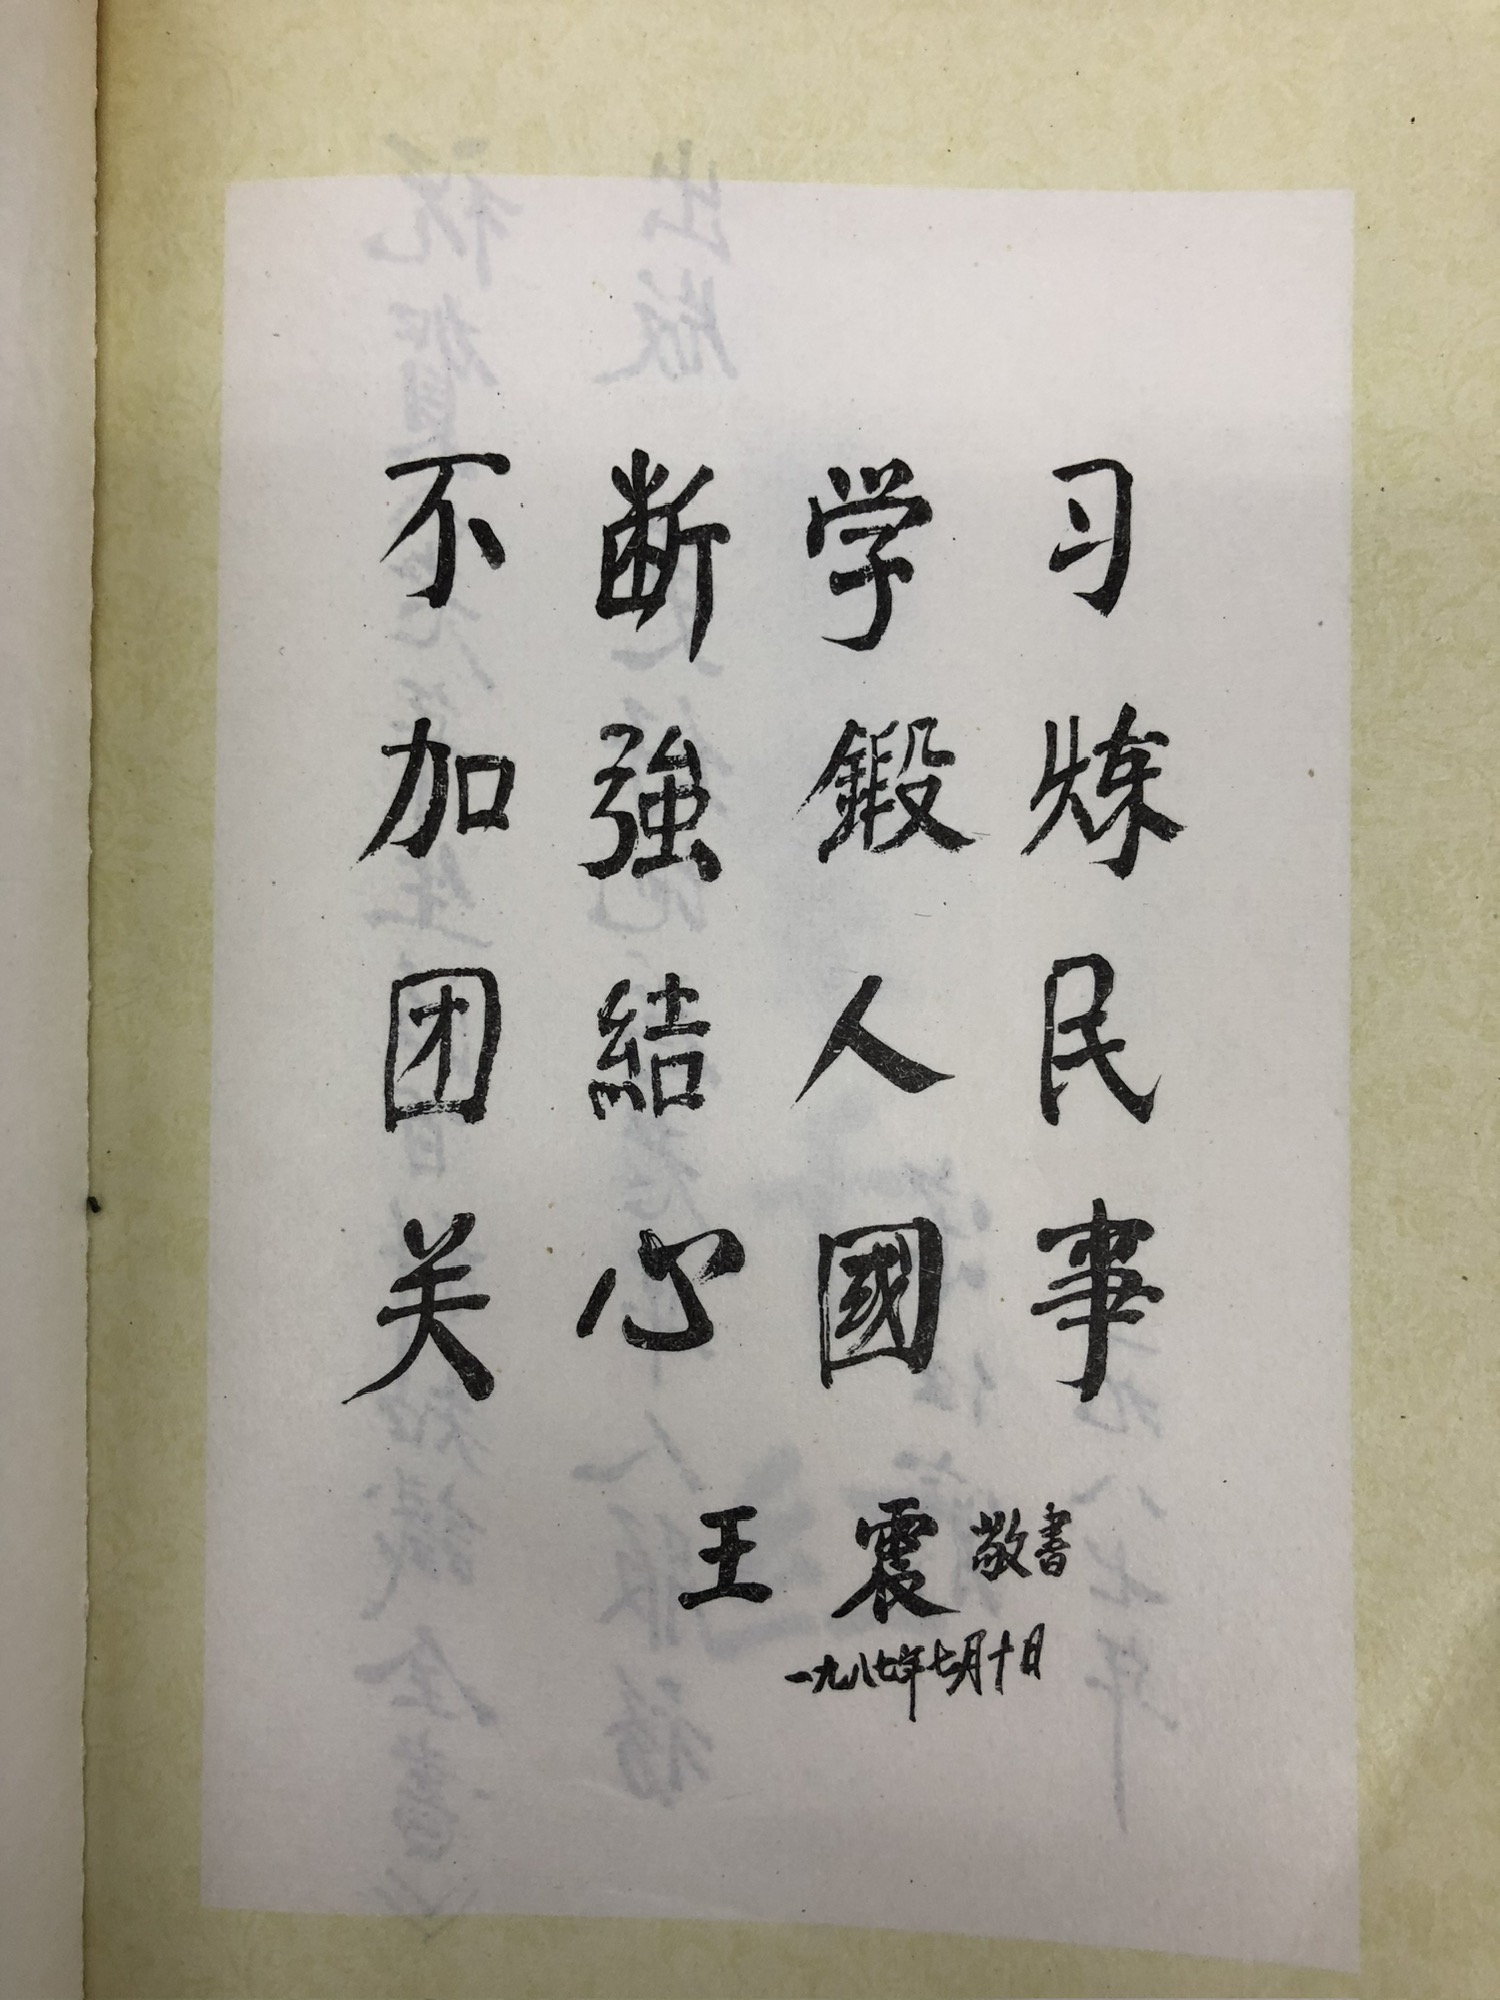 不断学习
加強鍛炼
团結人民
关心國事
王震敬書
一九八七年七月十日